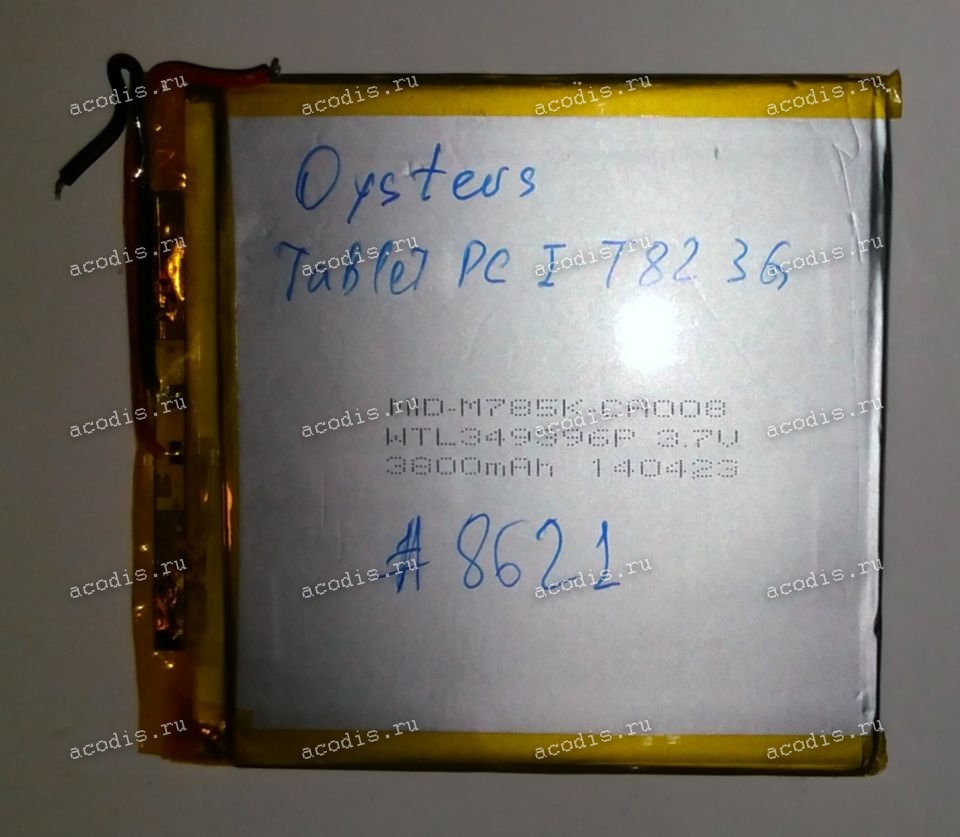 Oysters
Tablet PC I T82 3G
MID-M785K-CA008
WTL349396P 3.7V
3800mAh 140423
# 8621
acodis.ru acodis.ru acodis.ru acodis.ru
acodis.ru acodis.ru acodis.ru acodis.ru
acodis.ru acodis.ru acodis.ru acodis.ru
acodis.ru acodis.ru acodis.ru acodis.ru
acodis.ru acodis.ru acodis.ru acodis.ru